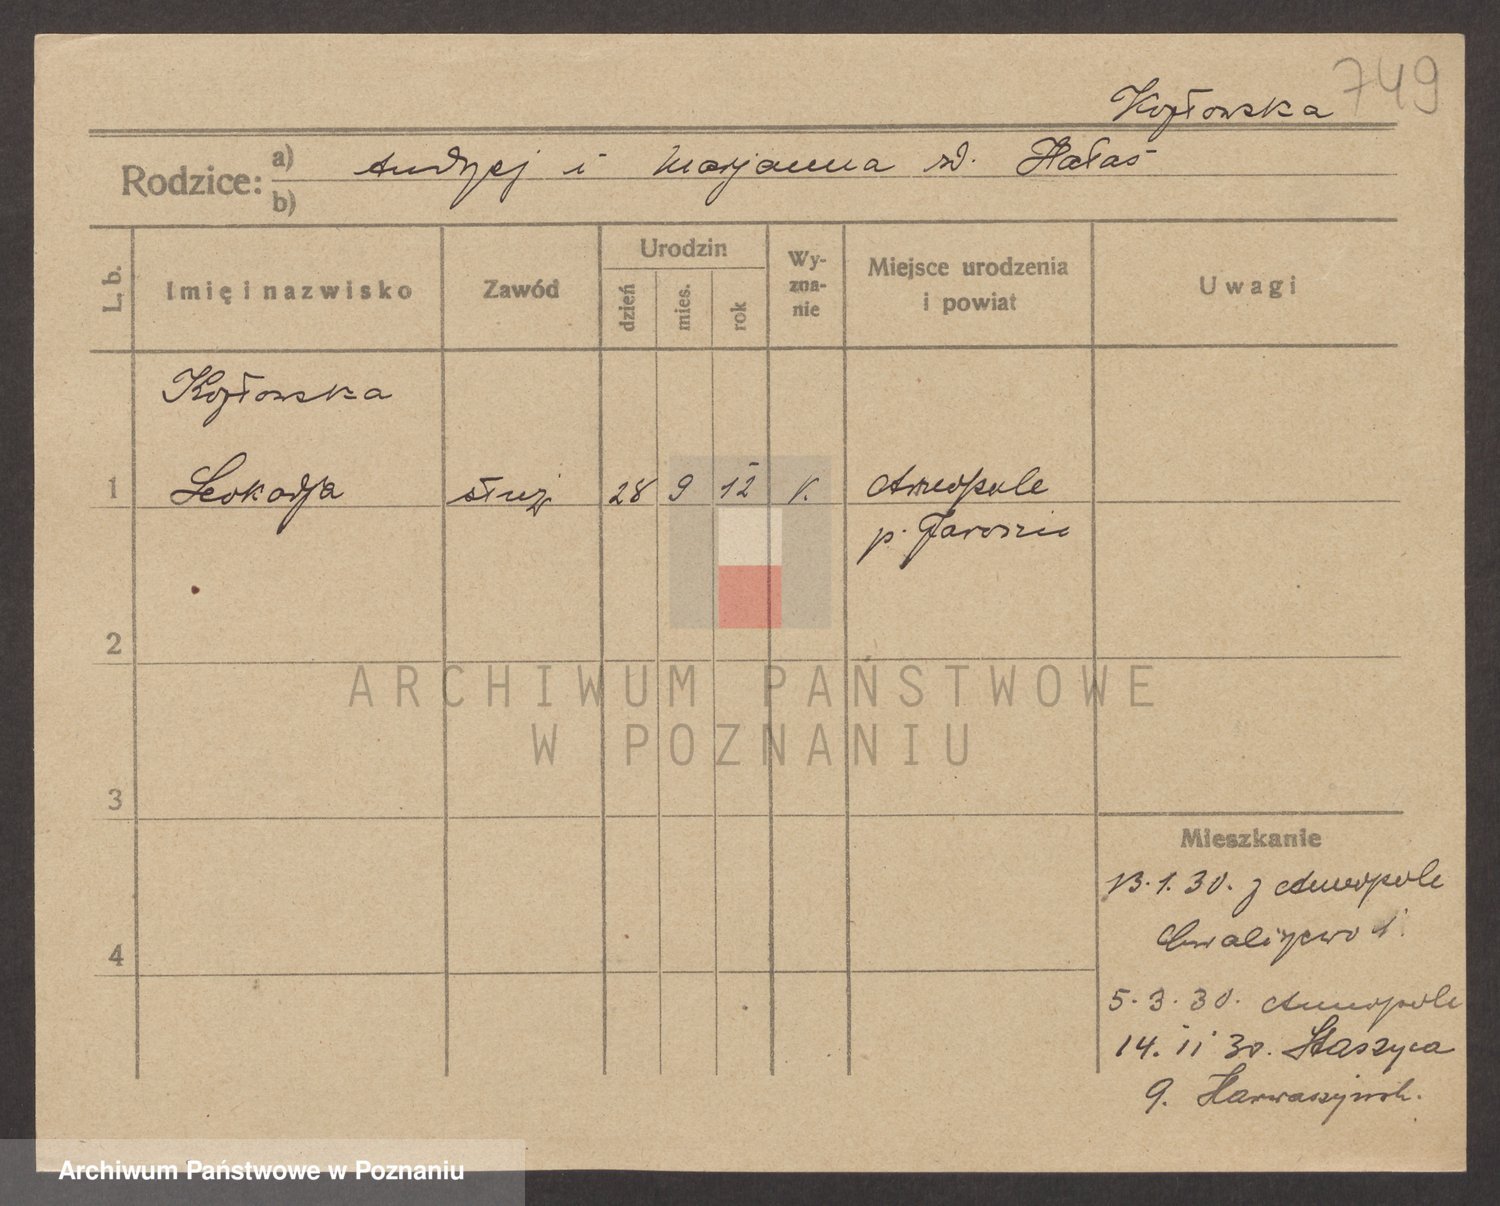 749
Kozłowska
Rodzice: a) Andrzej i Marjanna rd. Hałas
b)
L. b. Imię i nazwisko Zawód Urodzin dzień mies. rok Wyznanie Miejsce urodzenia i powiat Uwagi
Kozłowska
1 Leokadja służ. 28 9 12 k. Annopole
p. Jarocin
2
ARCHIWUM PAŃSTWOWE
W POZNANIU
3
Mieszkanie
13.1.30. z Annopole
4
5.3.30. Annopole
14. 11 30. Staszyca
9.
Archiwum Państwowe w Poznaniu